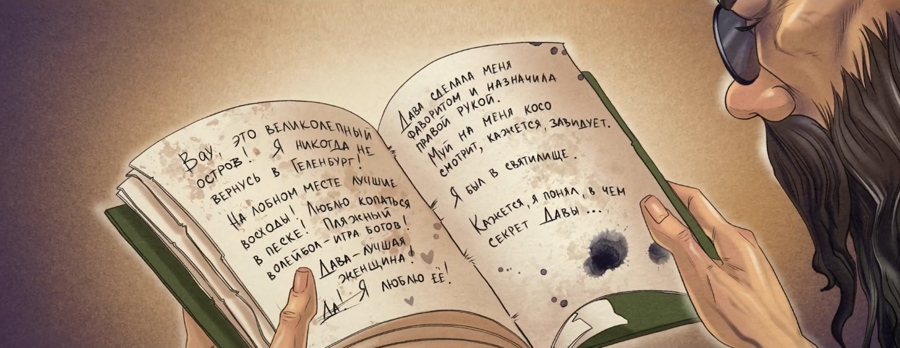 Вау, это великолепный
остров! Я никогда не
вернусь в Геленбург!
На лобном месте лучшие
восходы! Люблю копаться
в песке! Пляжный
волейбол-игра богов!
Дава-лучшая
женщина!
Да! Я люблю её!
Дава сделала меня
фаворитом и назначила
правой рукой.
Муй на меня косо
смотрит, кажется, завидует.
Я был в святилище.
Кажется, я понял, в чем
секрет Давы...